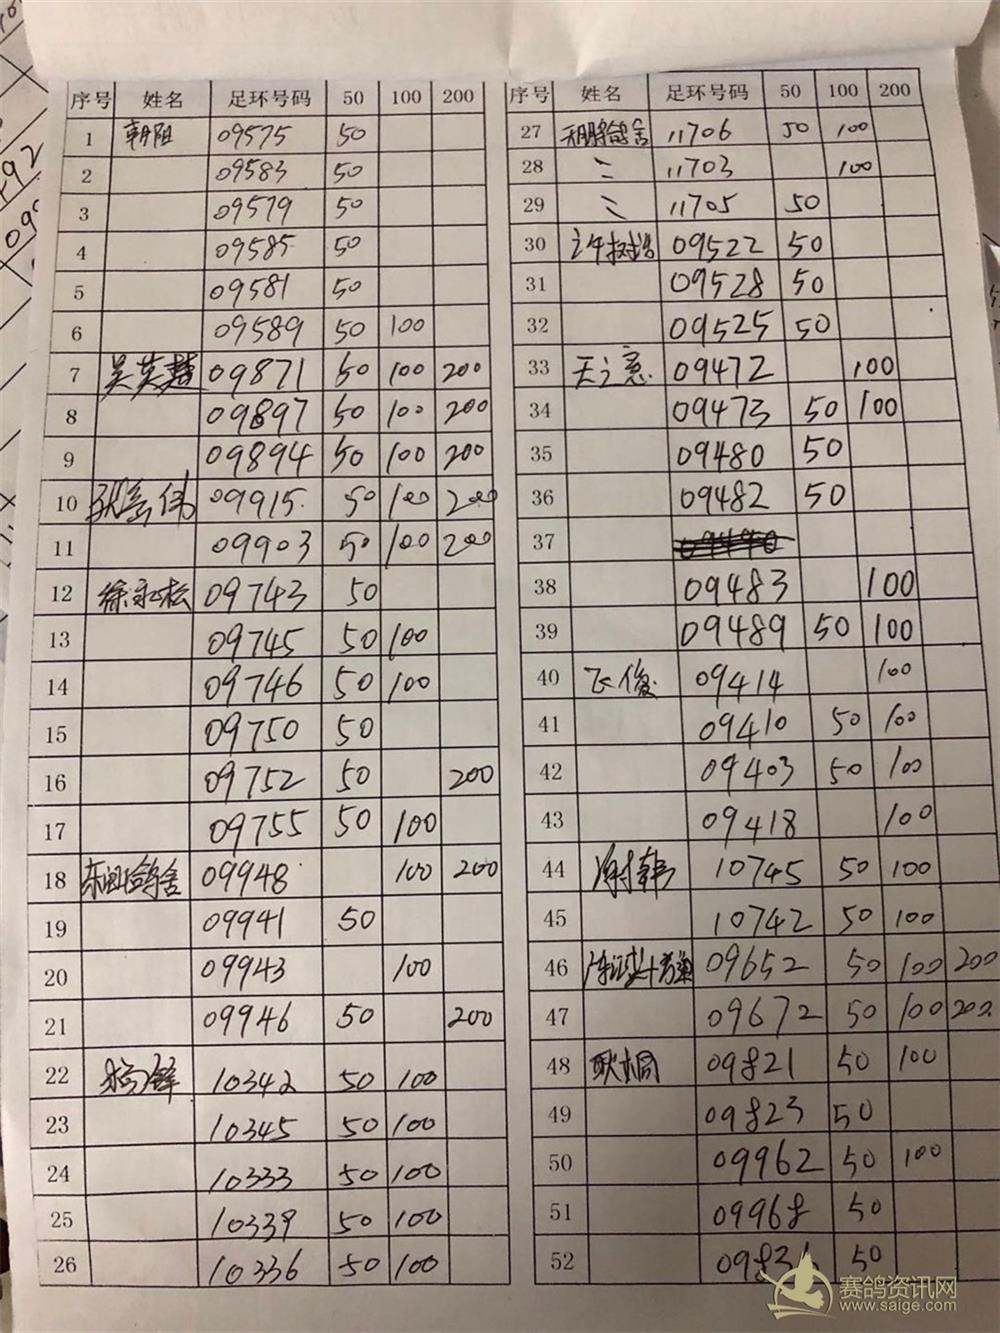 序号 姓名 足环号码 50 100 200
1 朝阳 09575 50
2 09583 50
3 09579 50
4 09585 50
5 09581 50
6 09589 50 100
7 吴英慧 09871 50 100 200
8 09897 50 100 200
9 09894 50 100 200
10 伟 09915 50 100 200
11 09903 50 100 200
12 徐永松 09743 50
13 09745 50 100
14 09746 50 100
15 09750 50
16 09752 50 200
17 09755 50 100
18 鸽舍 09948 100 200
19 09941 50
20 09943 100
21 09946 50 200
22 杨锋 10342 50 100
23 10345 50 100
24 10333 50 100
25 10339 50 100
26 10336 50 100
序号 姓名 足环号码 50 100 200
27 鸽舍 11706 50 100
28 11703 100
29 11705 50
30 许树 09522 50
31 09528 50
32 09525 50
33 天之意 09472 100
34 09473 50 100
35 09480 50
36 09482 50
37
38 09483 100
39 09489 50 100
40 飞俊 09414 100
41 09410 50 100
42 09403 50 100
43 09418 100
44 谢韩 10745 50 100
45 10742 50 100
46 09652 50 100 200
47 09672 50 100 200
48 耿桐 09821 50 100
49 09823 50
50 09962 50 100
51 09968 50
52 0983 50
赛鸽资讯网
www.saige.com